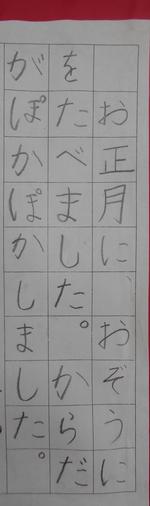 お正月に、おぞうに
をたべました。からだ
がぽかぽかしました。